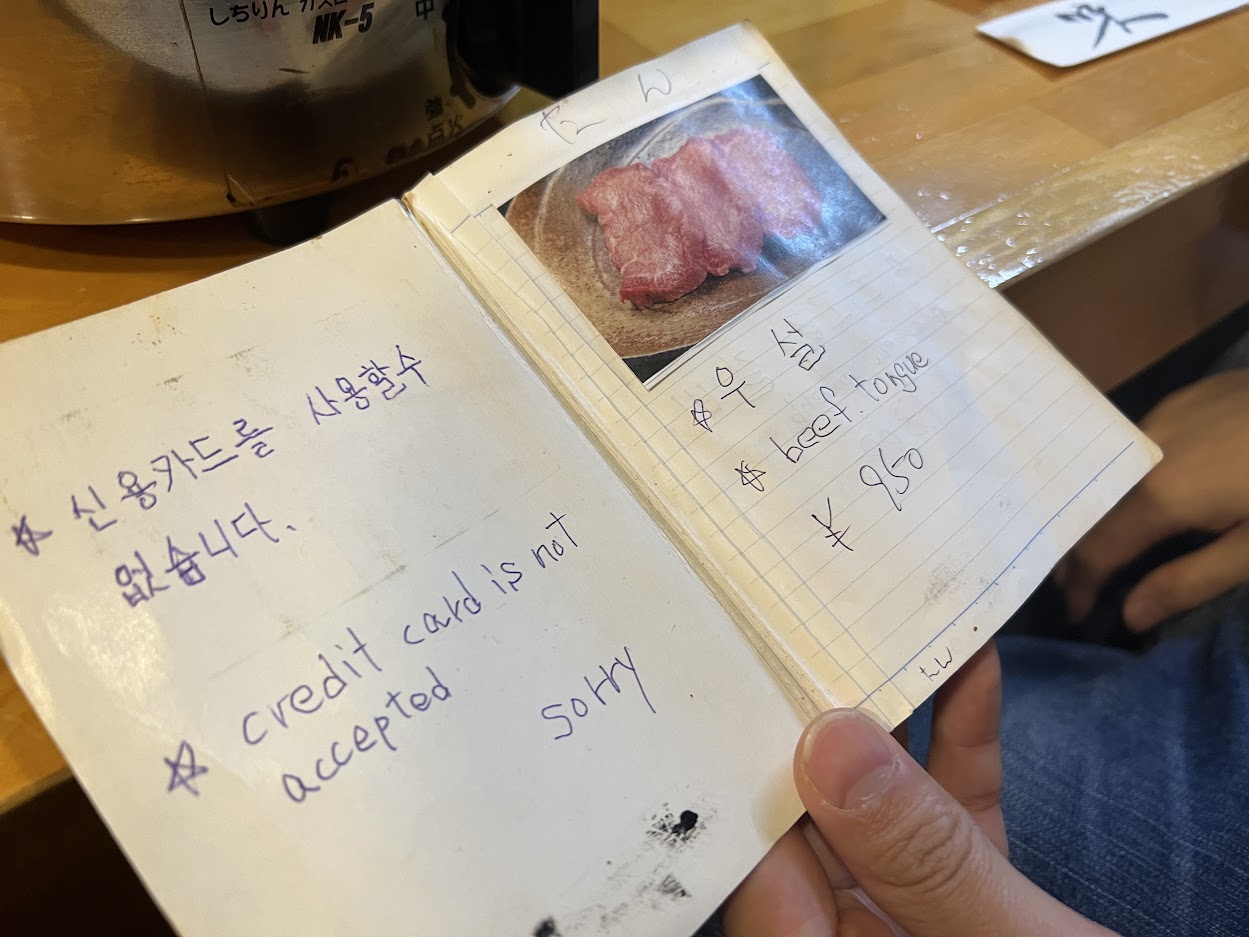 しちりん
NK-5
中
強
点火
☆ 신용카드를 사용할수
없습니다.
☆ credit card is not
accepted
sorry
タン
☆ 우 설
☆ beef. tongue
¥ 950